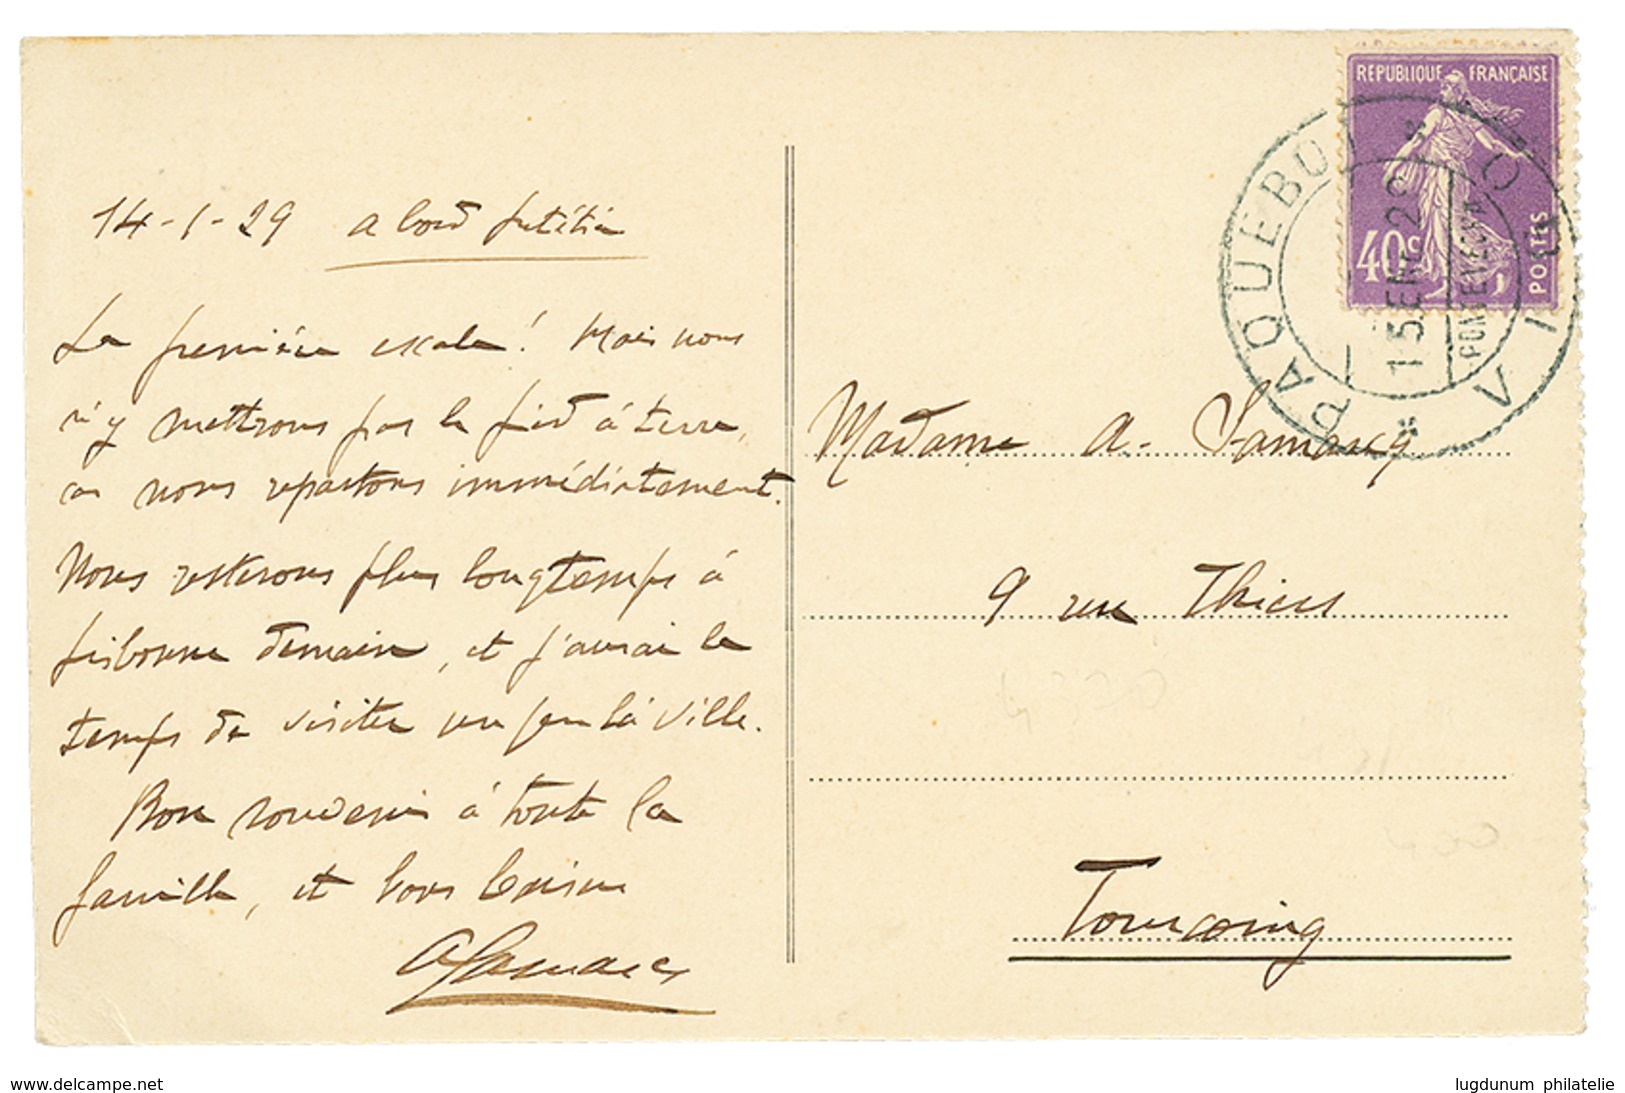 14-1-29 a bord Lutétia
La première escale! Mais nous
n'y mettrons pas le pied à terre,
car nous repartons immédiatement.
Nous resterons plus longtemps à
Lisbonne demain, et j'aurai le
temps de visiter un peu la ville.
Bon souvenir à toute la
famille, et bons baisers
REPUBLIQUE FRANÇAISE
40c
POSTES
PAQUEBOT
VIGO
15.ENE.29
PONTEVEDRA
Madame A.
9 rue Thiers
Tourcoing
www.delcampe.net
lugdunum philatelie